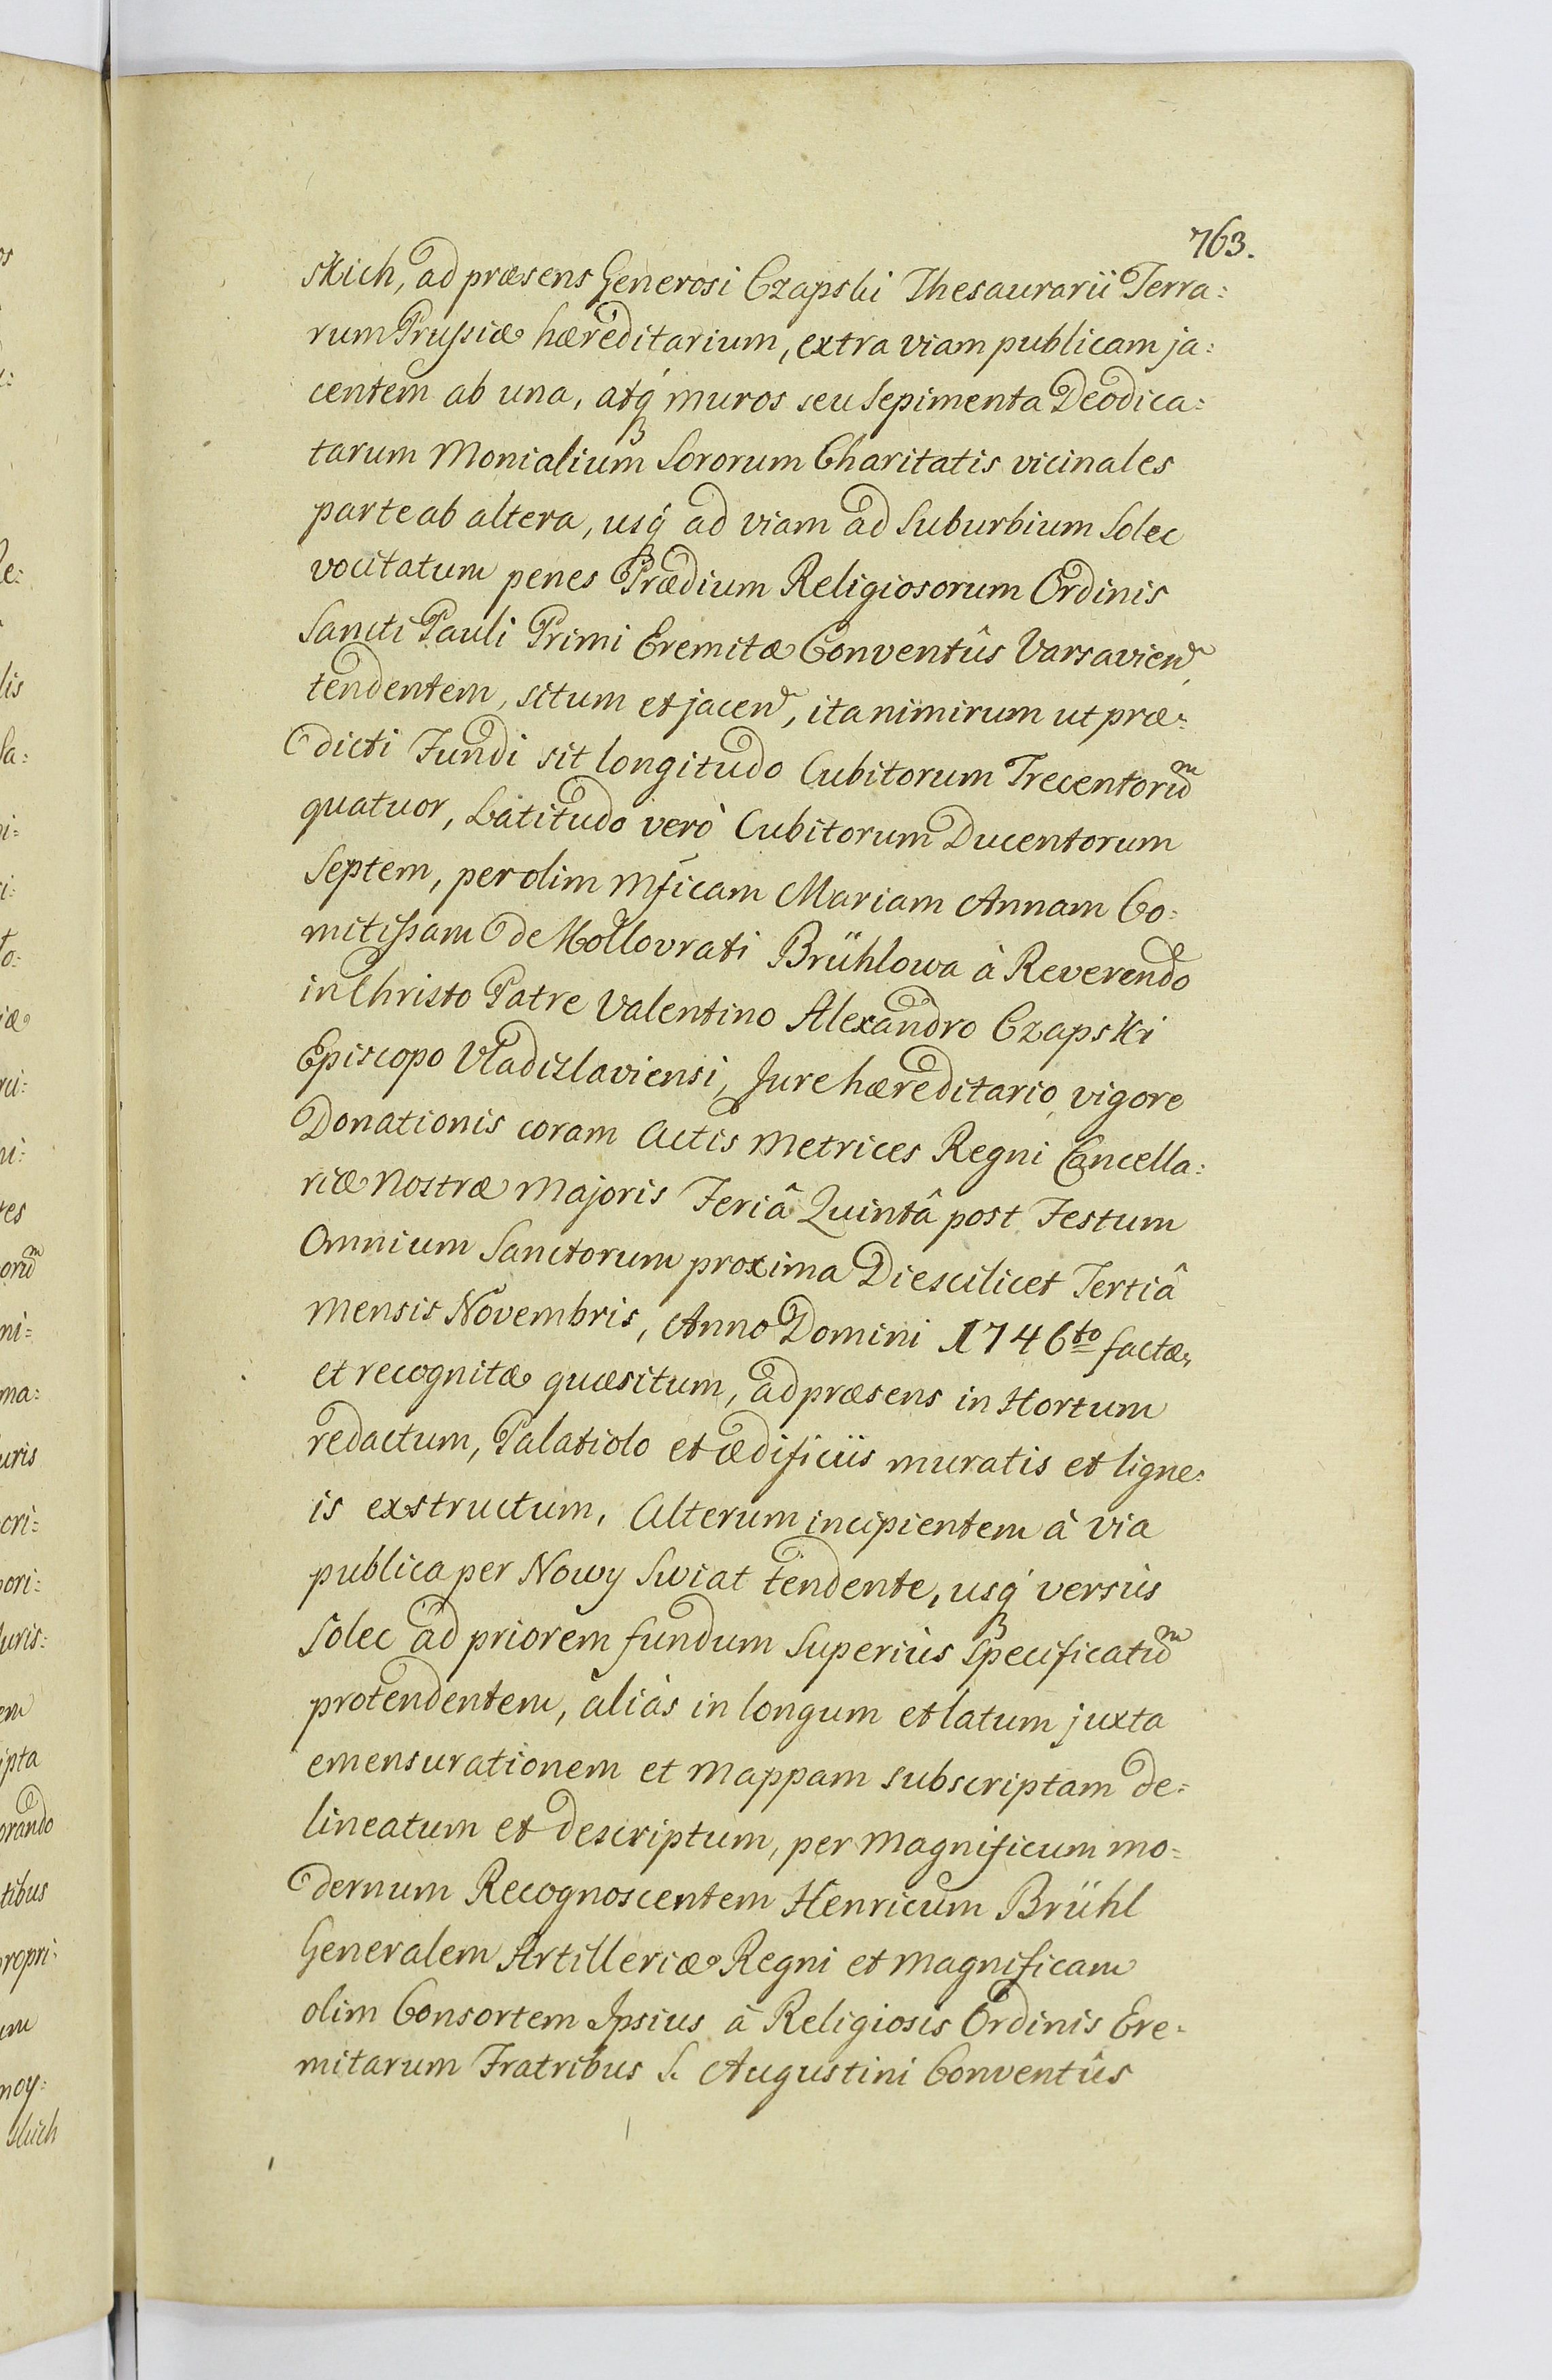 763.
skich, ad præsens Generosi Czapski Thesaurarii Terra:
rum Prussiæ hæreditarium, extra viam publicam ja:
centem ab una, atq́ muros seu Sepimenta Deodica:
tarum Monialium Sororum Charitatis vicinales
parte ab altera, usq́ ad viam ad Suburbium Solec
vocitatum penes Prædium Religiosorum Ordinis
Sancti Pauli Primi Eremitæ Conventûs Varsavien̄
tendentem, situm et jacen̄, ita nimirum ut præ:
dicti Fundi sit longitudo Cubitorum Trecentoruͫ
quatuor, Latitudo verò Cubitorum Ducentorum
Septem, per olim Mf̄icam Mariam Annam Co:
mitissam de Kollovrati Brühlowa à Reverendo
in Christo Patre Valentino Alexandro Czapski
Episcopo Vladislaviensi, Jure hæreditario vigore
Donationis coram Actis Metrices Regni Cancella:
riæ Nostræ Majoris Feriâ Quintâ post Festum
Omnium Sanctorum proxima Die scilicet Tertiâ
Mensis Novembris, Anno Domini 1746to factæ
et recognitæ quæsitum, ad præsens in Hortum
redactum, Palatiolo et ædificiis muratis et ligne:
is exstructum, Alterum incipientem à via
publica per Nowy Swiat tendente, usq́ versùs
Solec ad priorem fundum Superiùs Specificatuͫ
protendentem, aliàs in longum et latum juxta
emensurationem et Mappam subscriptam de:
lineatum et descriptum, per Magnificum mo:
dernum Recognoscentem Henricum Brühl
Generalem Artilleriæ Regni et Magnificam
olim Consortem Ipsius à Religiosis Ordinis Ere:
mitarum Fratribus S. Augustini Conventûs